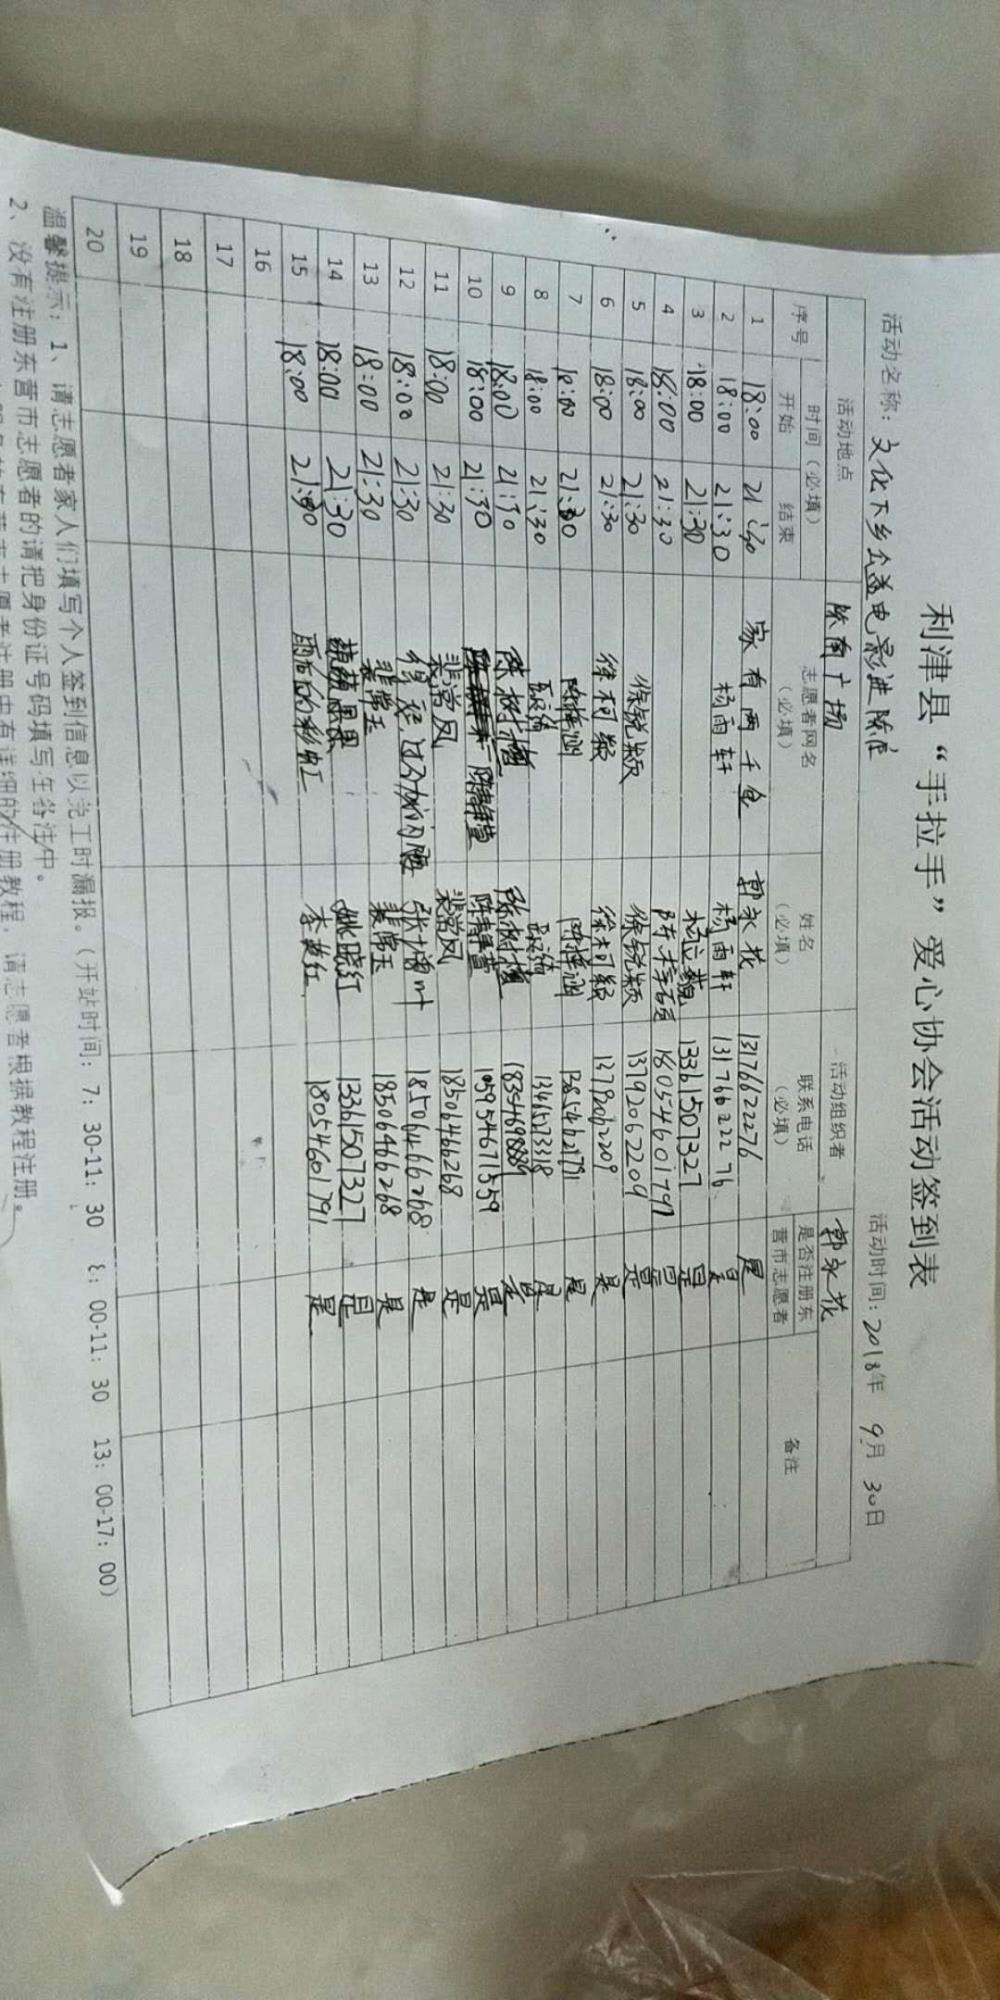 利津县“手拉手”爱心协会活动签到表
活动名称：文化下乡公益电影进陈庄 活动时间：2018年 9月 30日
活动地点 陈南广场 活动组织者 郭永花
序号 时间（必填） 开始 结束 志愿者网名（必填） 姓名（必填） 联系电话（必填） 是否注册东营市志愿者 备注
1 18:00 21:30 家有两千金 郭永花 13176622276 是
2 18:00 21:30 杨雨轩 杨雨轩 13176622276 是
3 18:00 21:30 13361507327 是
4 18:00 21:30 18054601797 是
5 18:00 21:30 徐锐颖 徐锐颖 13792062209 是
6 18:00 21:30 徐柯颖 徐柯颖 13792062209 是
7 18:00 21:30 是
8 18:00 21:30 是
9 18:00 21:30 陈树增 陈树增
10 18:00 21:30 15954671559 是
11 18:00 21:30 裴常凤 裴常凤 18506466268 是
12 18:00 21:30 18506466268 是
13 18:00 21:30 裴常玉 裴常玉 18506466268 是
14 18:00 21:30 姚晓红 13361507327 是
15 18:00 21:30 雨后的彩虹 李黄红 18054601791 是
16
17
18
19
20
温馨提示：1、请志愿者家人们填写个人签到信息以免工时漏报。（开站时间：7：30-11：30 8：00-11：30 13：00-17：00）
2、没有注册东营市志愿者的请把身份证号码填写在备注中。
请志愿者根据教程注册。